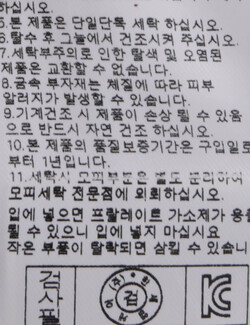 하십시오.
5.본 제품은 단일단독 세탁 하십시오.
6.탈수 후 그늘에서 건조시켜 주십시오.
7.세탁부주의로 인한 탈색 및 오염된
제품은 교환할 수 없습니다.
8.금속 부자재는 체질에 따라 피부
알러지가 발생할 수 있습니다.
9.기계건조 시 제품이 손상 될 수 있음
으로 반드시 자연 건조 하십시오.
10.본 제품의 품질보증기간은 구입일로
부터 1년입니다.
11.세탁시 모피부분은 별도 분리하여
모피세탁 전문점에 의뢰하십시오.
입에 넣으면 프탈레이트 가소제가 용출
될 수 있으니 입에 넣지 마십시요
작은 부품이 탈락되면 삼킬 수 있습니
검
사
필
검